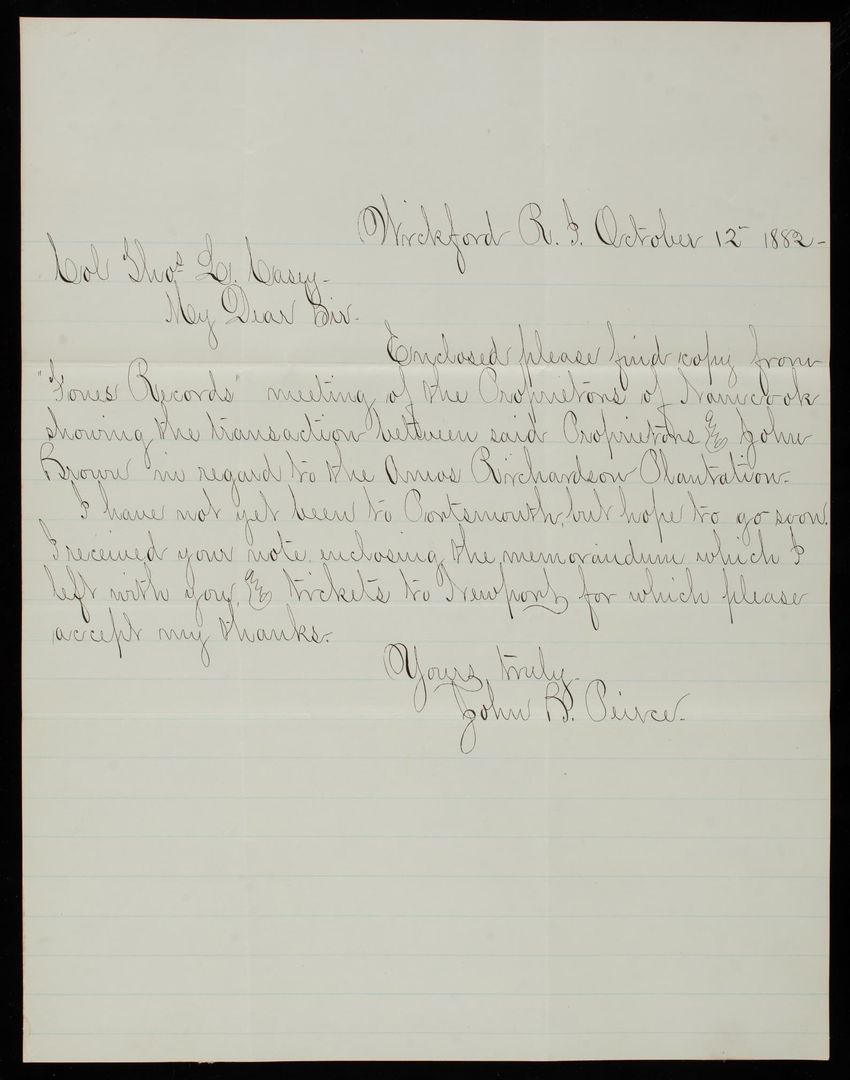 Wickford R. I. October 12 1882-
Col Thos L. Casey-
My Dear Sir-
Enclosed please find copy from
"Fones Records" meeting of the Proprietors of Namcook
showing the transaction between said Proprietors & John
Brown in regard to the Amos Richardson Plantation-
I have not yet been to Portsmouth, but hope to go soon.
I received your note enclosing the memorandum which I
left with you, & tickets to Newport, for which please
accept my thanks-
Yours, truly-
John B. Peirce-